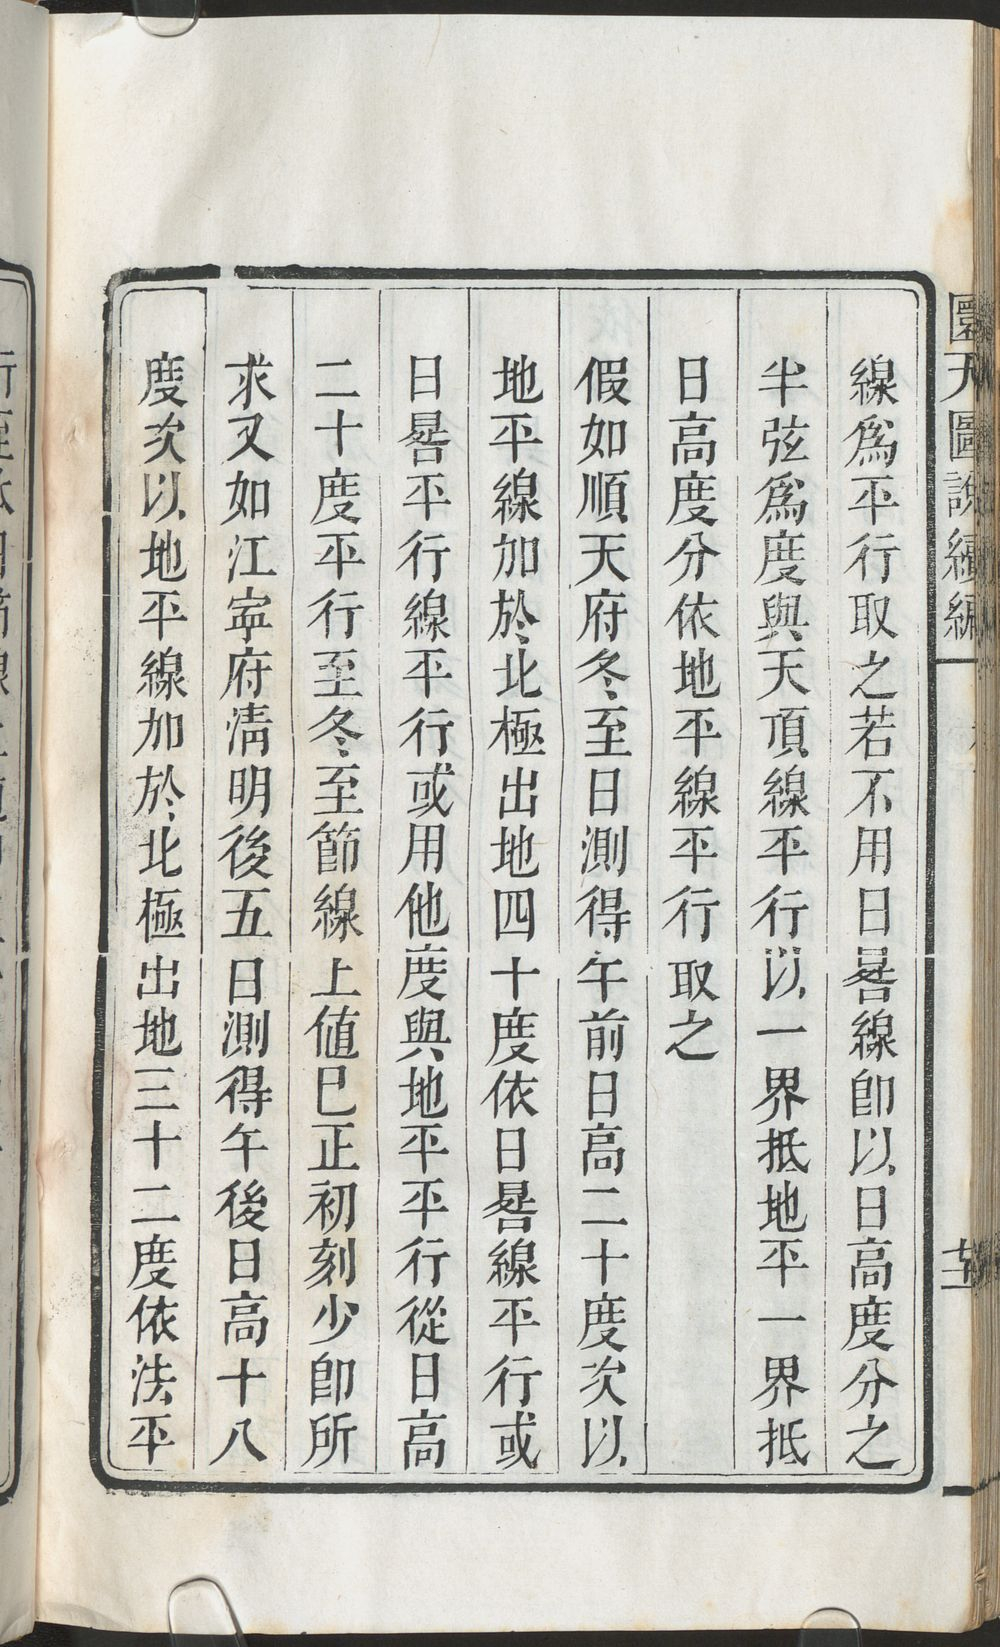 線爲平行取之若不用日晷線卽以日高度分之
半弦爲度與天頂線平行以一界抵地平一界抵
日高度分依地平線平行取之
假如順天府冬至日測得午前日高二十度次以
地平線加於北極出地四十度依日晷線平行或
日晷平行線平行或用他度與地平平行從日高
二十度平行至冬至節線上値巳正初刻少卽所
求又如江寕府淸明後五日測得午後日高十八
度次以地平線加於北極出地三十二度依法平
圜天圖說續編